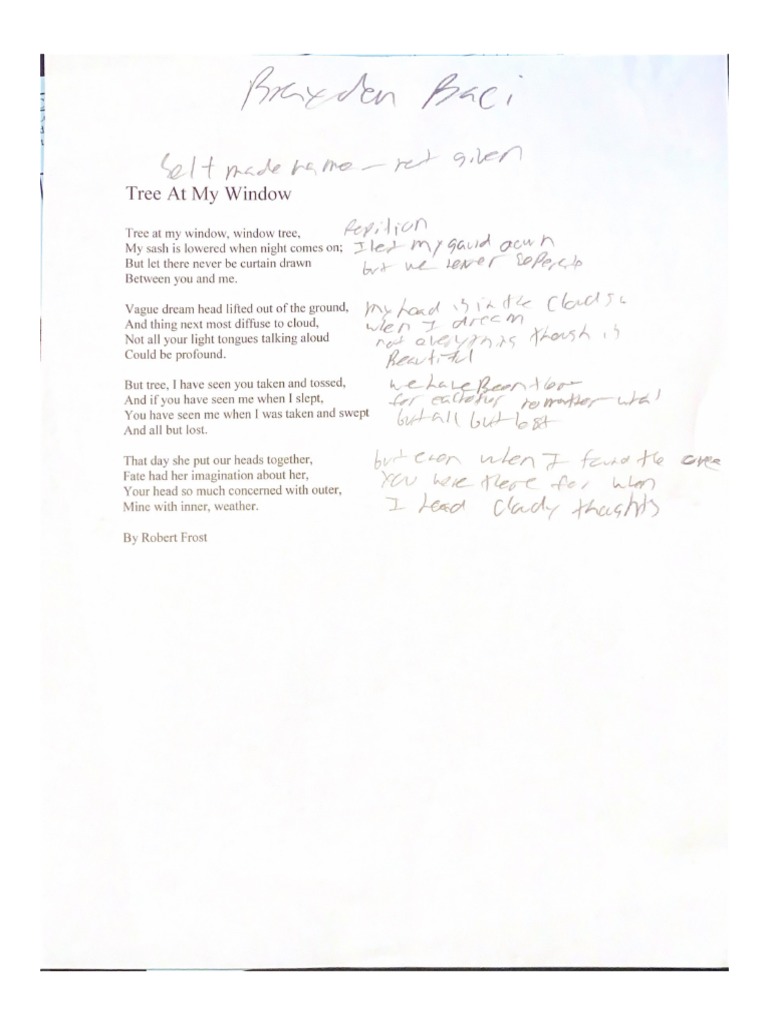 Braxden Baci
Self made name – not given
Tree At My Window
Tree at my window, window tree,
Repition
My sash is lowered when night comes on;
I let my gaurd down
But let there never be curtain drawn
but we never seperate
Between you and me.
Vague dream head lifted out of the ground,
my head is in the clouds
And thing next most diffuse to cloud,
when I dream
Not all your light tongues talking aloud
not everything though is
Could be profound.
Beautiful
But tree, I have seen you taken and tossed,
we have Been there
And if you have seen me when I slept,
for eachother no matter what
You have seen me when I was taken and swept
but all but lost
And all but lost.
That day she put our heads together,
but even when I found the
Fate had her imagination about her,
You were there for when
Your head so much concerned with outer,
I had cloudy thoughts
Mine with inner, weather.
By Robert Frost